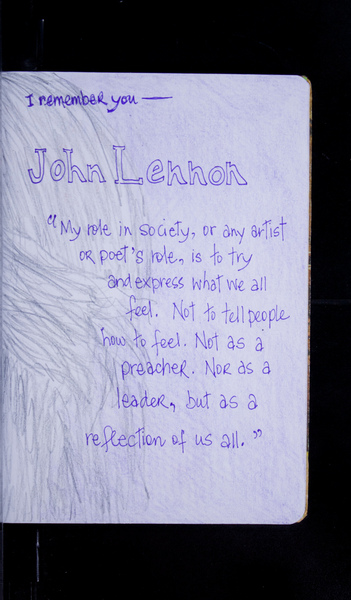 I remember you —
John Lennon
"My role in society, or any artist
or poet's role, is to try
and express what we all
feel. Not to tell people
how to feel. Not as a
preacher. Nor as a
leader, but as a
reflection of us all."